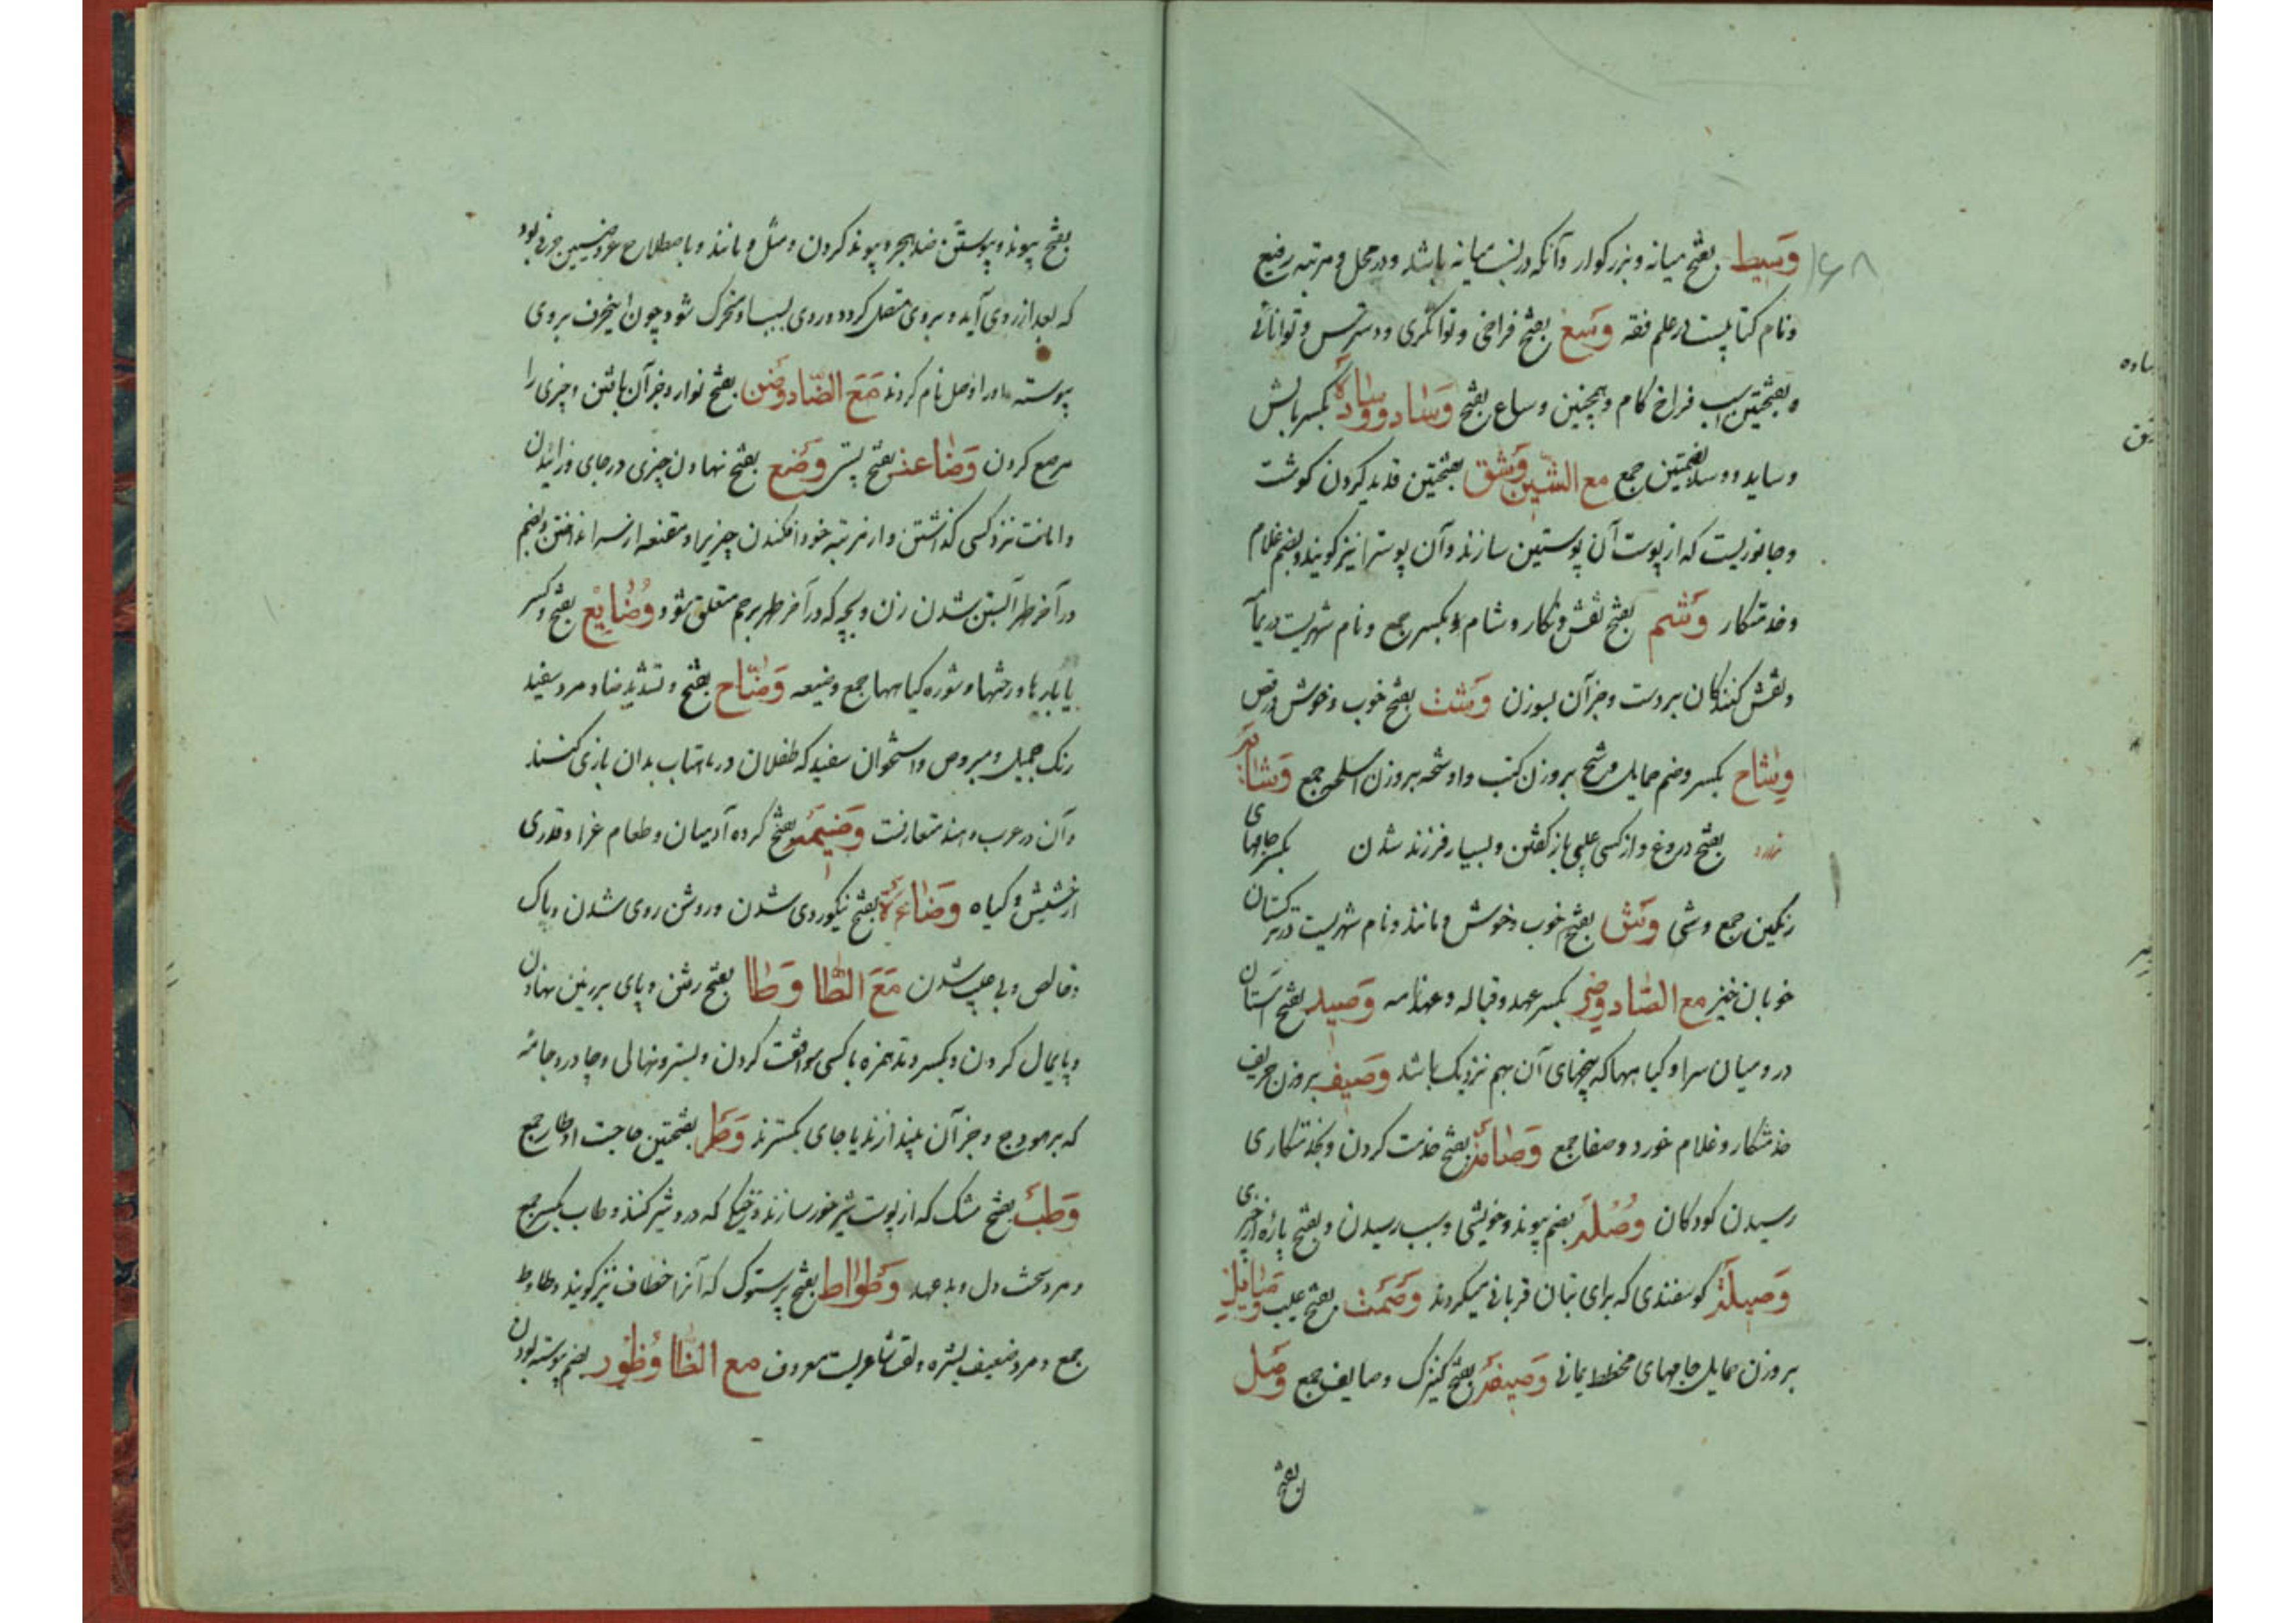 وسیط بفتح میانه و بزرگوار و آنکه در نسب میانه باشد و در محل و مرتبه رفیع
و نام کتابیست در علم فقه وسع بفتح فراخی و توانگری و دسترس و توانائی
و بفتحتین اسب فراخ کام و همچنین وساع بفتح وساد و وسادة بکسر بالش
وساید و وسد بضمتین جمع مع الشین وشق بفتحتین قدید کردن گوشت
و جانوریست که از پوست آن پوستین سازند و آن پوسترا نیز گویند و بضم غلام
و خدمتکار وشم بفتح نقش و نگار و شام بکسر جمع و نام شهریست در یما
و نقش کنندگان بردست و جز آن بسوزن وشت بفتح خوب و خوش و رقص
وشاح بکسر و ضم حمایل وشح بروزن کتب و اوشحه بروزن اسلحه جمع
بفتح دروغ و از کسی باز گفتن و بسیار فرزند شدن بکسر جامهای
رنگین جمع وشی وشق بفتح خوب و خوش و مانند و نام شهریست در ترکستان
خوبان خیز مع الصاد بکسر عهد و قباله و عهدنامه وصید بفتح آستان
در و میان سرا و گیاهها که بیخهای آن بهم نزدیک باشد وصیف بروزن حریف
خدمتکار و غلام خورد وصفا جمع بفتح خدمت کردن و بخدمتکاری
رسیدن کودکان وصله بضم پیوند و خویشی و سبب رسیدن و بفتح پاره از چیزی
وصیلة گوسفندی که برای بتان قربانی میکردند وصمت بفتح عیب وصایل
بروزن حمایل جامهای مخطط یمانی وصیفة بفتح کنیزک وصایف جمع وصل
بفتح
بفتح پیوند و پیوستن ضد هجر و پیوند کردن و مثل و مانند و باصطلاح عروضیین حرفی بود
که بعد از روی آید و بروی متصل گردد و روی بسبب او متحرک شود چون اینحرف بروی
پیوسته اورا وصل نام کردند مع الضاد وضن بفتح نوار و جز آن بافتن و چیزی را
مرصع کردن بفتح پستی وضع بفتح نهادن چیزی در جای و زائیدن
و امانت نزد کسی گذاشتن و از مرتبه خود افکندن چیزیرا و مقنعه از سر انداختن و بضم
در آخر طهر آبستن شدن زن و بچه که در آخر طهر برحم متعلق شود وضایع بفتح و کسر
یا بارها و رختها و شوره گیاهها جمع وضیعه وضاح بفتح و تشدید ضاد مرد سفید
رنگ جمیل و مبروص و استخوان سفید که طفلان در ماهتاب بدان بازی کنند
و آن در عرب و هند متعارفست وضیمه بفتح گروه آدمیان و طعام عزا و قدری
از حشیش و گیاه وضاءة بفتح نیکوروی شدن و روشن روی شدن و پاک
و خالص و بی عیب شدن مع الطا وطا بفتح رفتن و پای بر زمین نهادن
و پایمال کردن و بکسر و مد همزه با کسی موافقت کردن و بستر و نهالی و چادر و جامه
که بر هودج و جز آن بیندازند یا جای بگسترند وطر بفتحتین حاجت اوطار جمع
وطب بفتح مشک که از پوست شیر خور سازند و خیکی که در و شیر کنند وطاب بکسر جمع
و مرد سخت دل و بد عهد وطواط بفتح پرستوک که آنرا خطاف نیز گویند وطاوط
جمع و مرد ضعیف و لقب شاعریست معروف مع الظا وظور بضم پیوسته بودن